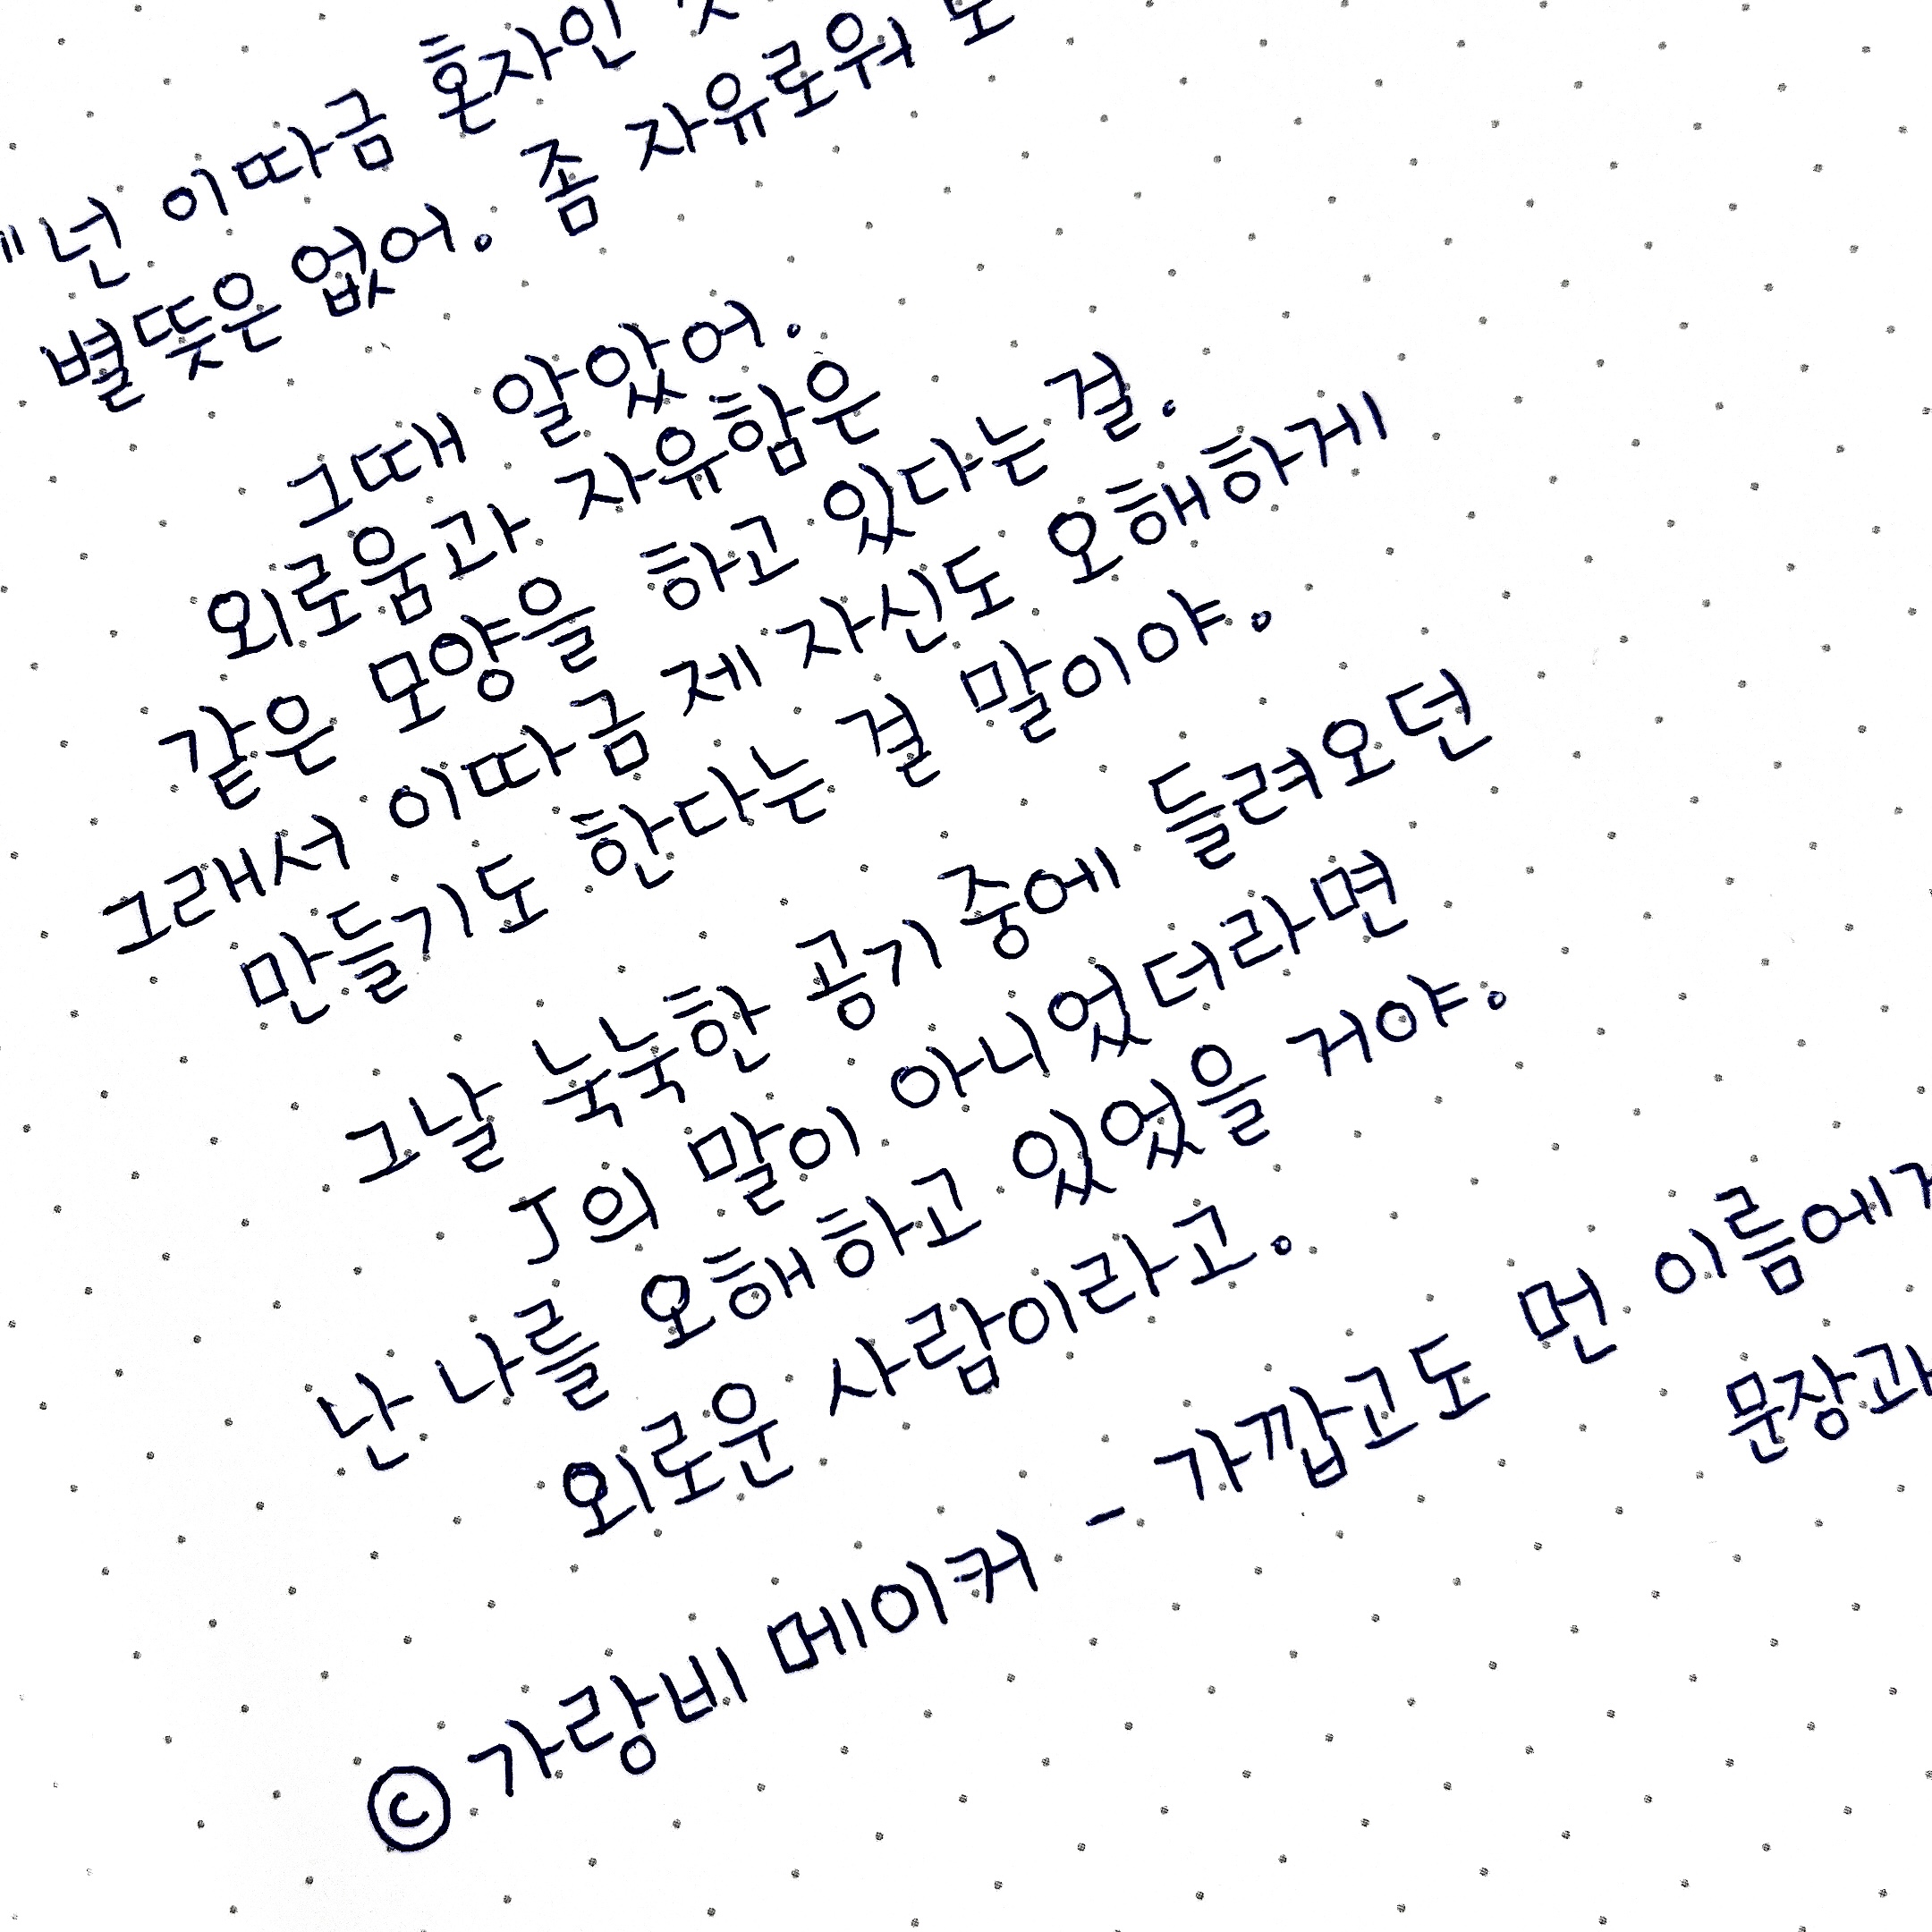 "넌 이따금 혼자인
별뜻은 없어. 좀 자유로워
그때 알았어.
외로움과 자유함은
같은 모양을 하고 있다는 걸.
그래서 이따금 제 자신도 오해하게
만들기도 한다는 걸 말이야.
그날 눅눅한 공기 중에 들려오던
J의 말이 아니었더라면
난 나를 오해하고 있었을 거야.
외로운 사람이라고.
© 가랑비 메이커 - 가깝고도 먼 이름에게
문장과